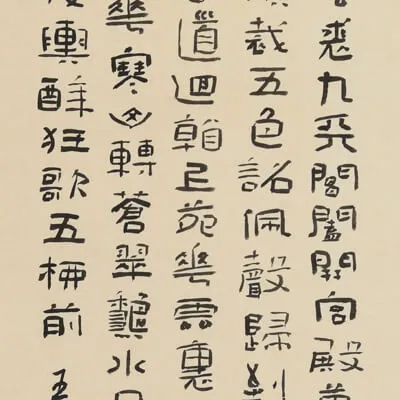 裘九天閶闔開宮殿萬
裁五色詔佩聲歸到
道迴看上苑華雲裏
華寒山轉蒼翠秋水日
輿醉狂歌五柳前 王